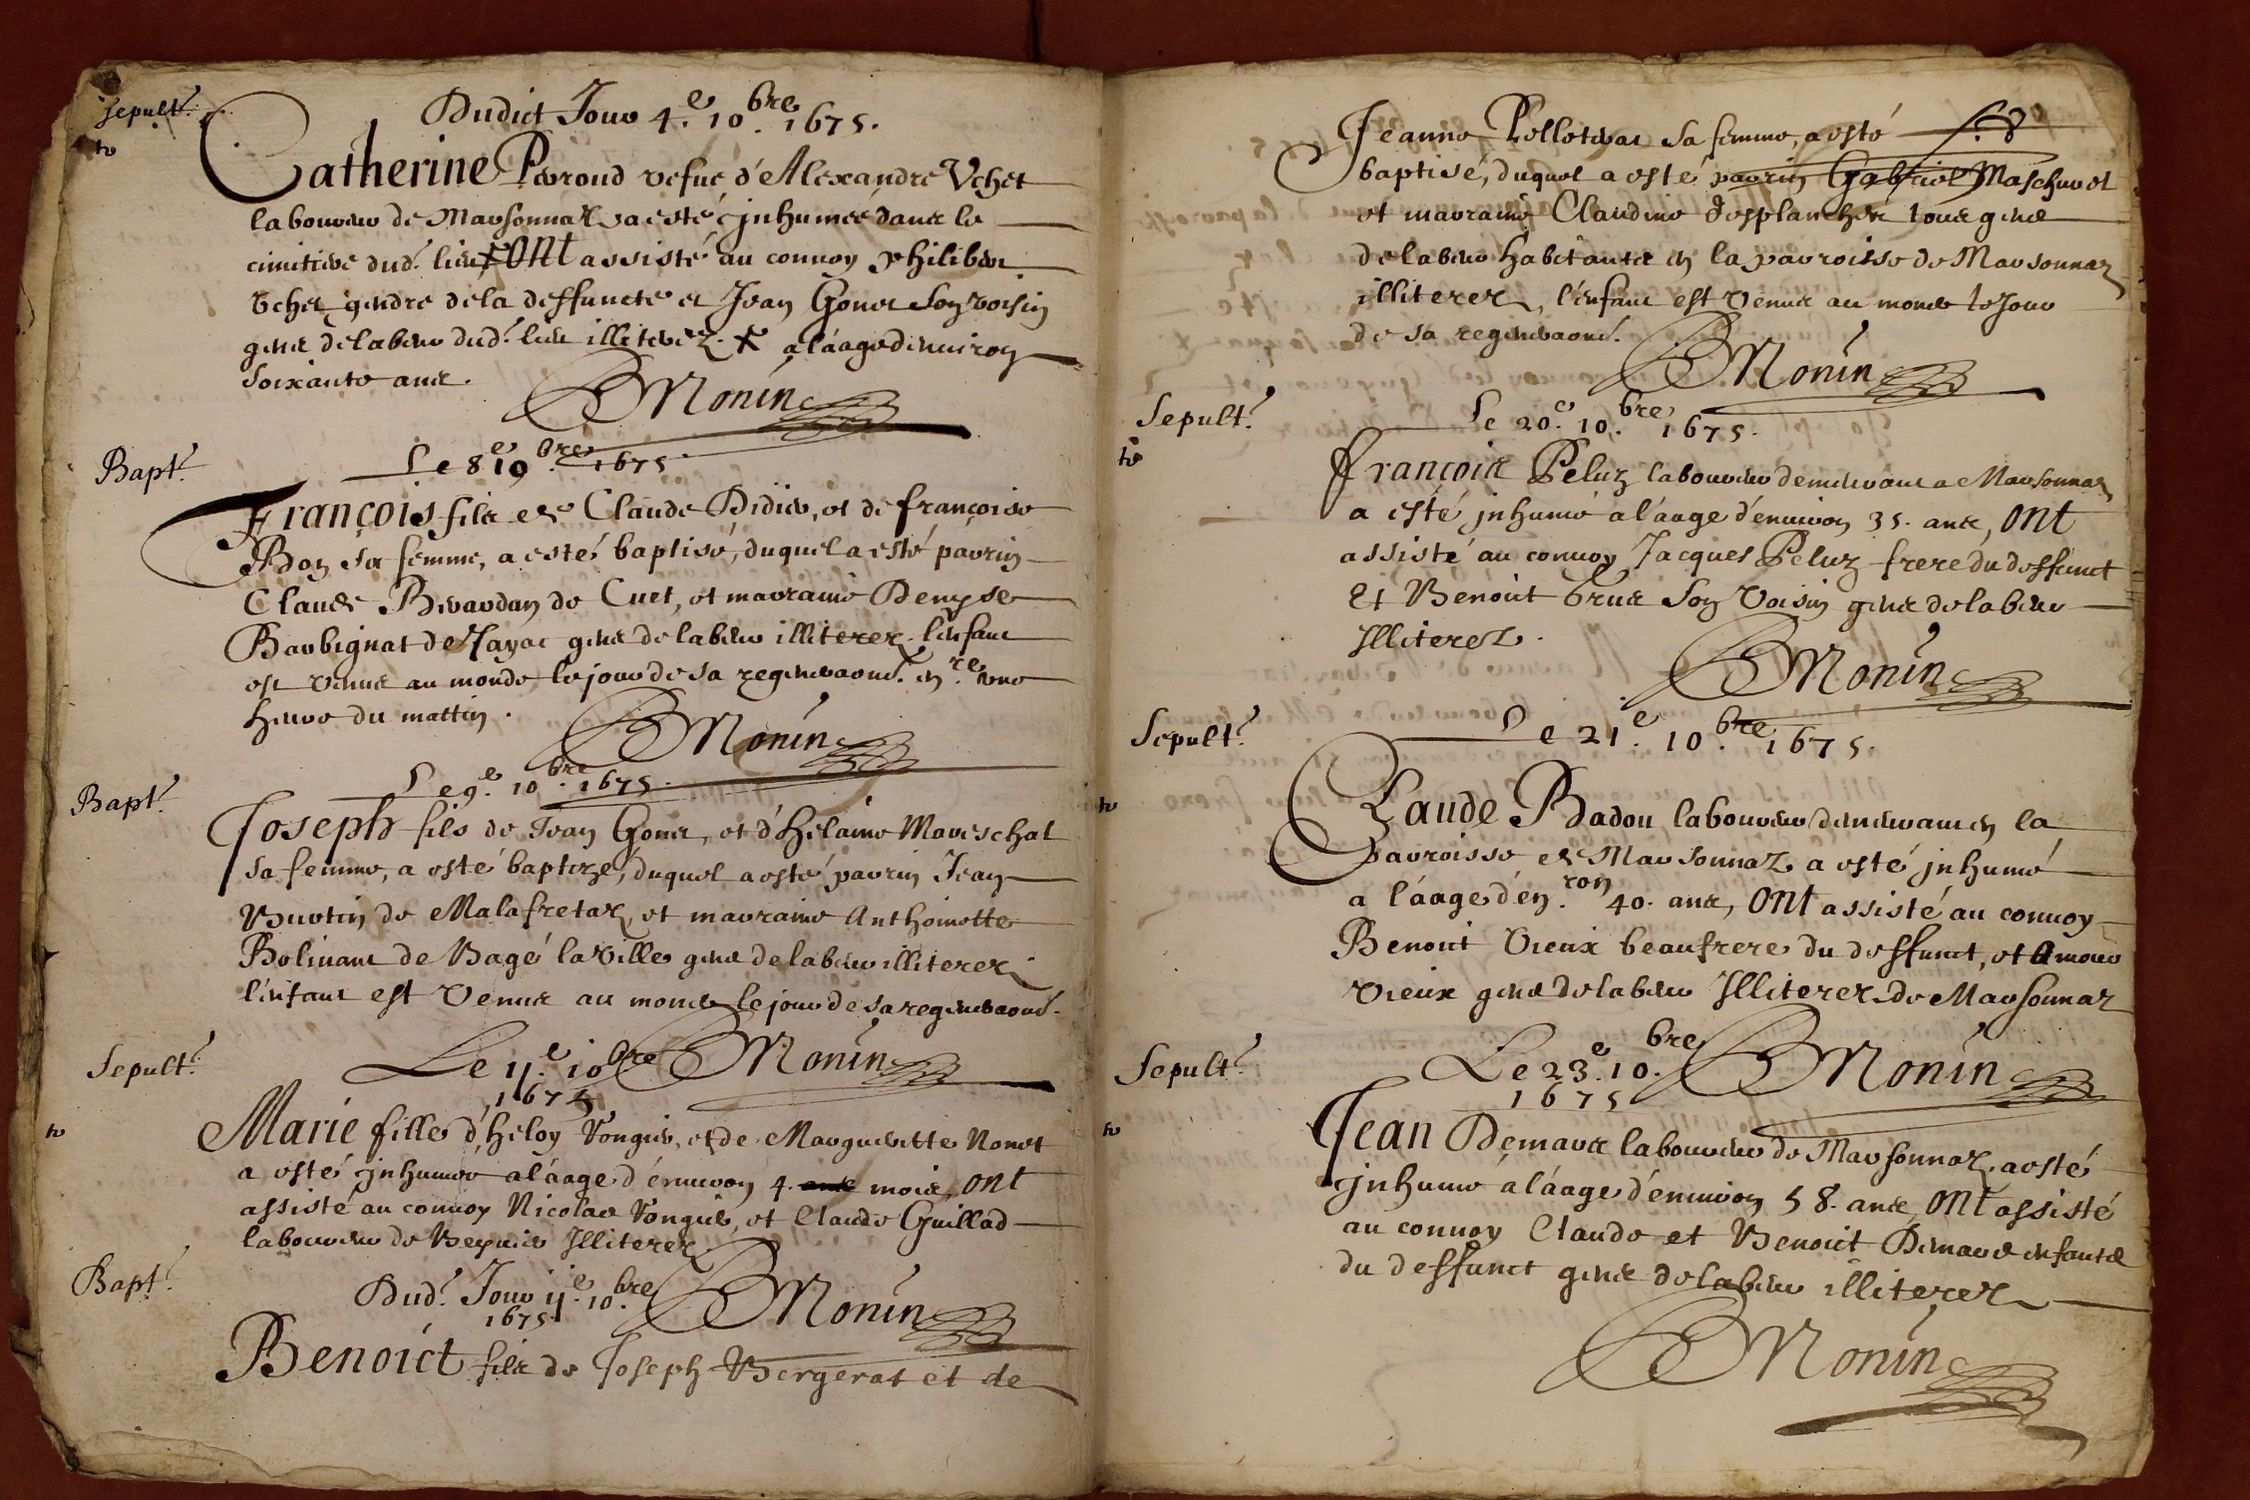 Sepult.e
Dudict Jour 4.e 10.bre 1675.
Catherine Perroud vefue d'Alexandre Vchet
laboureur de Marsonnaz a esté jnhumée dans le
cimitiere dud. lieu, ONt assisté au conuoy philibert
Vchet gendre de la deffuncte et Jean Gonet son voisin
gens de labeur dud. lieu illiterez. a l'aage d'enuiron
soixante ans.
Monin
Bapt.e
Le 8.e 10.bre 1675.
François fils de Claude Didier, et de françoise
Bon sa femme, a esté baptisé, duquel a esté parrin
Claude Bevardan de Cuet, et marraine Denyse
Barbignat de Jayac gens de labeur illiterez. l'enfant
est venus au monde le jour de sa regeneraon. en.re vne
heure du mattin.
Monin
Bapt.e
Le 9.e 10.bre 1675.
Joseph fils de Jean Gonet, et d'Helaine Mareschal
sa femme, a esté baptizé, duquel a esté parrin Jean
Buotin de Malafretaz, et marraine Anthoinette
Bolinant de Bagé la Ville gens de labeur illiterez
l'enfant est venus au monde le jour de sa regeneraon.
Monin
Sepult.e
Le 11.e 10.bre
1675
Marie fille d'Heloy Vongier, et de Margueritte Nonet
a esté jnhumée a l'aage d'enuiron 4. ans mois, ONt
assisté au conuoy Nicolas Vongier, et Claude Guillod
laboureur de Beynier Jlliterez.
Monin
Bapt.e
Dud. Jour 11.e 10.bre
1675
Benoict fils de Joseph Bergerat et de
Jeanne Pelletrat sa femme, a esté
baptisé, duquel a esté parrin Gabriel Maschuret
et marraine Claudine desplanches tous gens
de labeur habitants en la parroisse de Marsonnaz
illiterez, l'enfant est venus au monde le Jour
de sa regeneraon.
Monin
Sepult.e
Le 20.e 10.bre 1675.
François Peluz laboureur demeurant a Marsonnaz
a esté jnhumé a l'aage d'enuiron 35. ans, ONt
assisté au conuoy Jacques Peluz frere du deffunct
Et Benoict brus son voisin gens de labeur
Jlliterez.
Monin
Sepult.e
Le 21.e 10.bre 1675.
Claude Badou laboureur demeurant en la
parroisse de Marsonnaz a esté jnhumé
a l'aage d'en.ron 40. ans, ONt assisté au conuoy
Benoict Vieux beaufrere du deffunct, et Amour
vieux gens de labeur Jlliterez de Marsonnaz
Monin
Sepult.e
Le 23.e 10.bre
1675
Jean Demars laboureur de Marsonnaz, a esté
jnhumé a l'aage d'enuiron 58. ans, ONt assisté
au conuoy Claude et Benoict Demars enfants
du deffunct gens de labeur illiterez
Monin